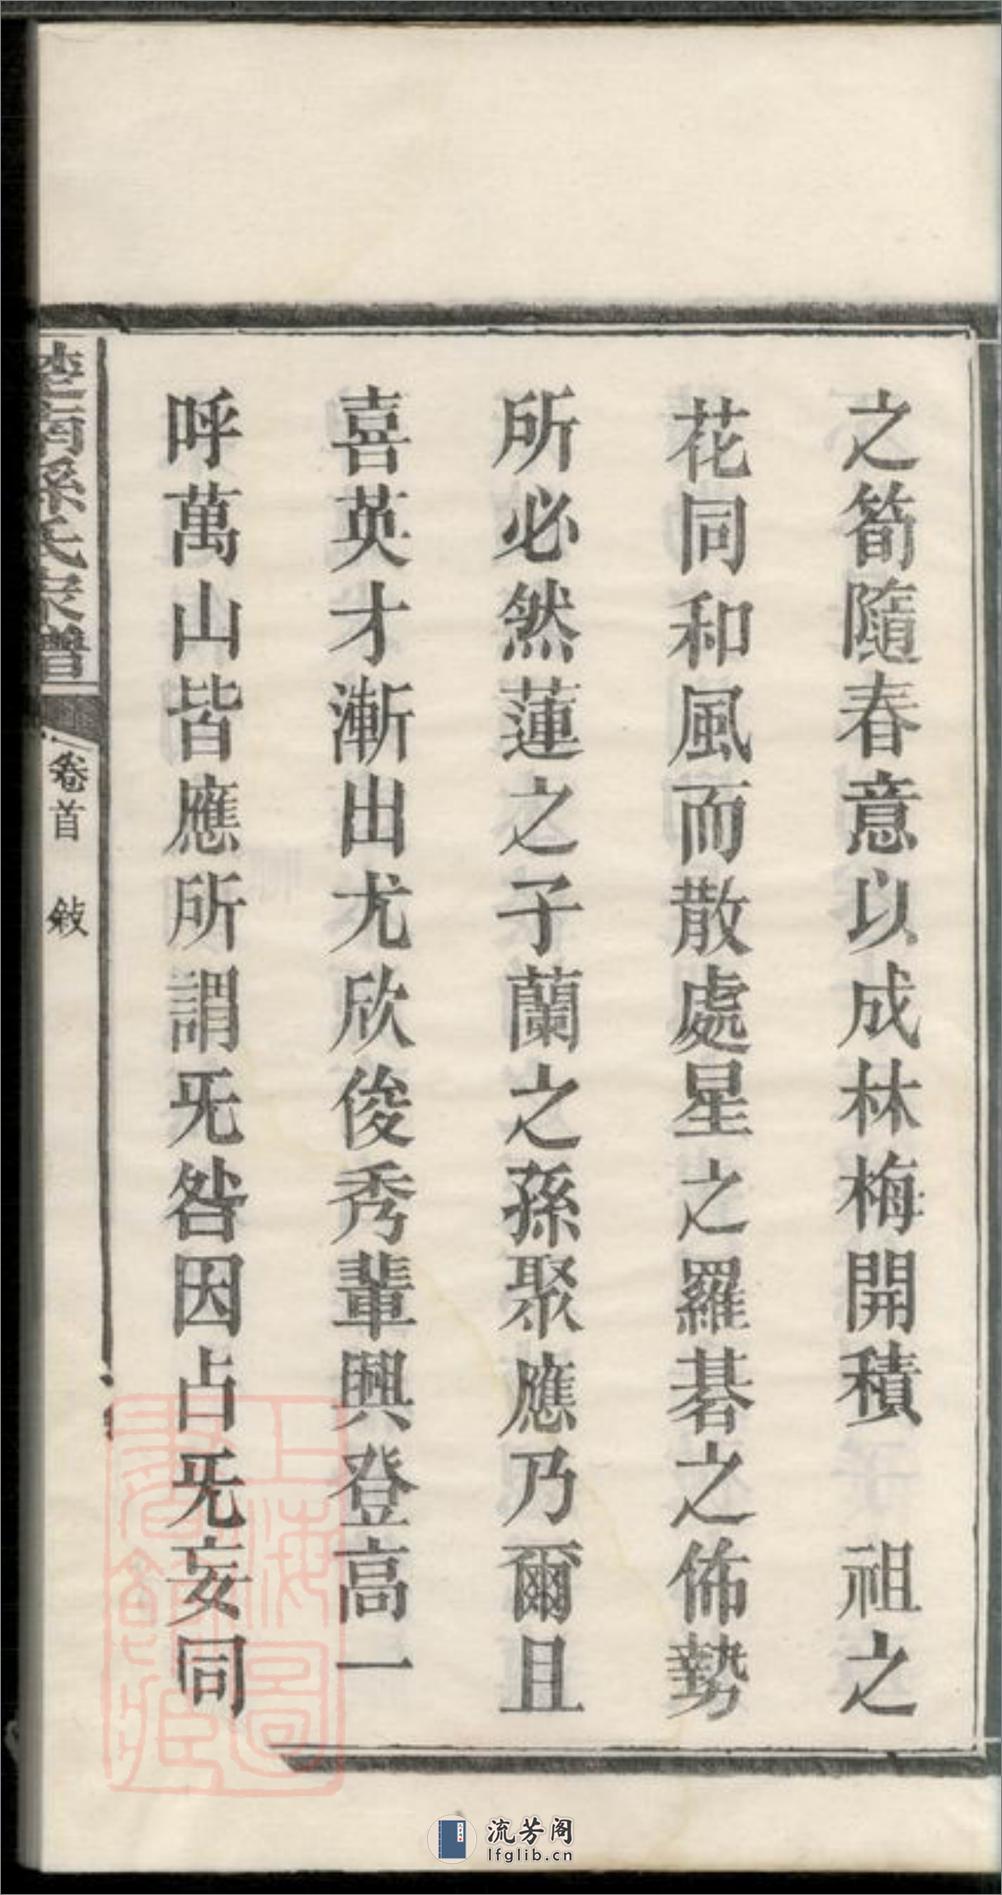 之筍隨春意以成林梅開積　祖之
花同和風而散處星之羅碁之佈勢
所必然蓮之子蘭之孫聚應乃爾且
喜英才漸出尤欣俊秀輩興登高一
呼萬山皆應所謂旡咎因占旡妄同
孫氏家譜
卷首　敍
上海圖書館藏
流芳阁
lfglib.cn